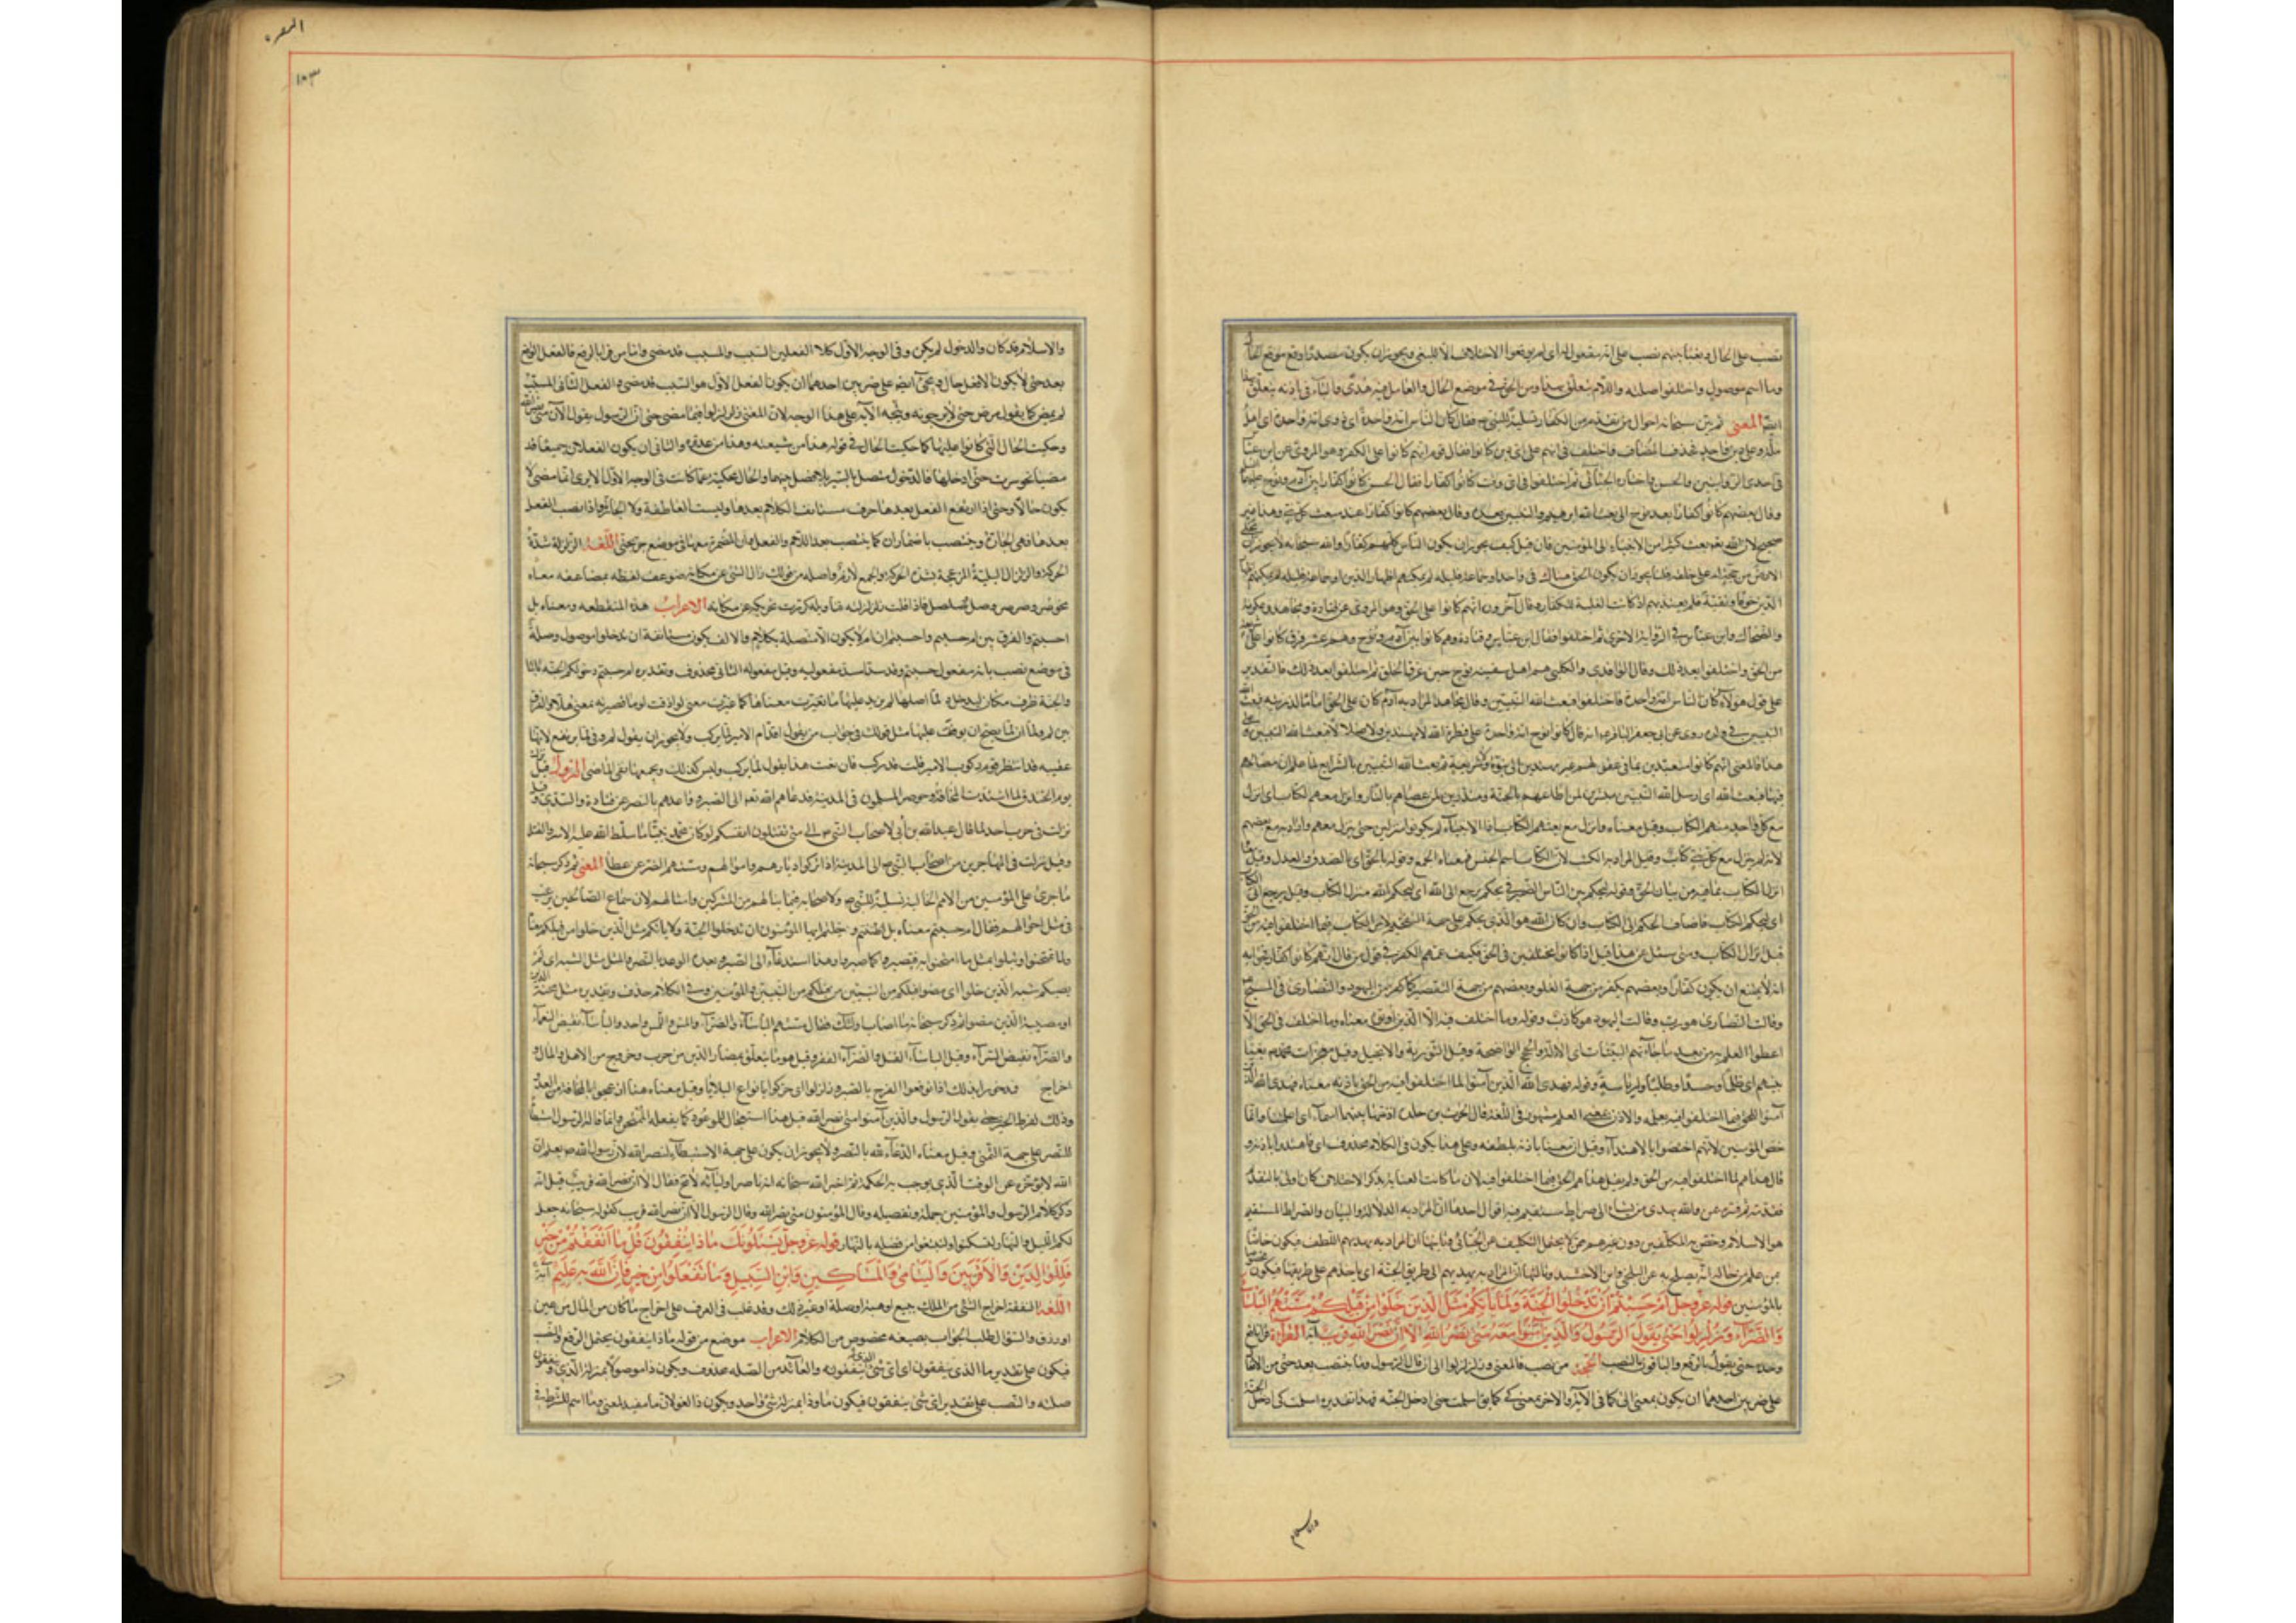 نصب على الحال وبغيا بينهم نصب على انه مفعول له اى لم يوقعوا الاختلاف الا للبغى ويجوز ان يكون مصدرا وقع موقع الحال
وما اسم موصول واختلفوا صلته واللام يتعلق بهدى ومن الحق فى موضع الحال والعامل فيه هدى والباء فى باذنه يتعلق
المعنى ثم بين سبحانه احوال من تقدم من الكفار تسلية للنبى ص فقال كان الناس امة واحدة اى ذوى امة واحدة اى اهل
ملة وعلى دين واحد فحذف المضاف واختلف فى انهم على اى دين كانوا فقال قوم انهم كانوا على الكفر وهو المروى عن ابن عباس
فى احدى الروايتين والحسن واختاره الجبائى ثم اختلفوا فى اى وقت كانوا كفارا فقال الحسن كانوا كفارا بين آدم ونوح
وقال بعضهم كانوا كفارا بعد نوح الى ان بعث الله ابرهيم والنبيين بعده وقال بعضهم كانوا كفارا عند مبعث كل نبى وهذا غير
صحيح لان الله بعث كثيرا من الانبياء الى المؤمنين فان قيل كيف يجوز ان يكون الناس كلهم كفارا والله سبحانه لا يجوز ان
الارض من حجة له على خلقه قلنا يجوز ان يكون الحق هناك فى واحد او جماعة قليلة لم يمكنهم اظهار الدين
خوفا وتقية فلم يعتد بهم اذ كانت الغلبة للكفار وقال آخرون انهم كانوا على الحق وهو المروى عن قتادة ومجاهد وعكرمة
والضحاك وابن عباس فى الرواية الاخرى ثم اختلفوا فقال ابن عباس وقتادة وهم كانوا بين آدم ونوح وهم عشر فرق كانوا على
من الحق واختلفوا بعد ذلك وقال الواقدى والكلبى هم اهل سفينة نوح حين غرق الخلق ثم اختلفوا بعد ذلك فالتقدير
على قول هولاء كان الناس امة واحدة فاختلفوا فبعث الله النبيين وقال مجاهد المراد به آدم كان على الحق اماما لذريته فبعث
النبيين فى ولده وروى عن ابى جعفر الباقر ع انه قال كانوا قبل نوح امة واحدة على فطرة الله لا مهتدين ولا ضلالا فبعث الله النبيين
هذا فالمعنى انهم كانوا متعبدين بما فى عقولهم غير مهتدين الى نبوة ولا شريعة ثم بعث الله النبيين بالشرايع لما علم ان مصالحهم
فيها فبعث الله اى ارسل الله النبيين مبشرين لمن اطاعهم بالجنة ومنذرين لمن عصاهم بالنار وانزل معهم الكتاب اى انزل
مع كل واحد منهم الكتاب وقيل معناه وانزل مع بعثهم الكتاب اذ الانبياء لم يكونوا منزلين حتى ينزل معهم واراد به مع بعضهم
لانه لم ينزل مع كل نبى كتاب وقيل المراد به الكتب لان الكتاب اسم الجنس فمعناه الجمع وقوله بالحق اى بالصدق والعدل وقيل
انزل الكتاب بما فيه من بيان الحق وقوله ليحكم بين الناس الضمير فى يحكم يرجع الى الله اى ليحكم الله منزل الكتاب وقيل يرجع الى
اى ليحكم الكتاب فاضاف الحكم الى الكتاب وان كان الله هو الذى يحكم على جهة التفخيم لامر الكتاب فيما اختلفوا فيه من
قبل انزال الكتاب ومتى سئل عن هذا فقيل اذا كانوا مختلفين فى الحق فكيف عمهم الكفر فى قول من قال انهم كانوا كفارا
انه لا يمتنع ان يكون كفارا وبعضهم يكفر من جهة الغلو وبعضهم من جهة التقصير كما كفرت اليهود والنصارى فى المسيح
وقالت النصارى هو رب وقالت اليهود هو كاذب وقوله وما اختلف فيه الا الذين اوتوه معناه وما اختلف فى الحق الا
اعطوا العلم به من بعد ما جاءتهم البينات اى الادلة والحجج الواضحة وقيل التورية والانجيل وقيل معجزات محمد ص بغيا
بينهم اى ظلما وحسدا وطلبا للرياسة وقوله فهدى الله الذين آمنوا لما اختلفوا فيه من الحق باذنه معناه فهدى الله
آمنوا للحق مما اختلفوا فيه بعلمه والاذن بمعنى العلم مشهور فى اللغة قال الحرث بن حلزة آذنتنا ببينها اسماء اى اعلمتنا وانما
خص المؤمنين لانهم اختصوا بالاهتداء وقيل ان معنى باذنه بلطفه وعلى هذا يكون فى الكلام محذوف اى فاهتدوا باذنه و
قال هداهم لما اختلفوا فيه من الحق ولم يقل هداهم للحق فيما اختلفوا فيه لان ما كانت العناية بذكر الاختلاف كان اولى بالتقديم
فقدمه ثم فسره بمن والله يهدى من يشاء الى صراط مستقيم فيه اقوال احدها ان المراد به الدلالة والبيان والصراط المستقيم
هو الاسلام وخص به المكلفين دون غيرهم ممن لا يحتمل التكليف عن الجبائى وثانيها ان المراد به يهديهم باللطف فيكون خاصا
بمن علم من حاله انه يصلح به عن البلخى وابن الاخشيد وثالثها ان المراد به يهديهم الى طريق الجنة اى ياخذهم على طريقها فيكون
بالمؤمنين قوله عز وجل ام حسبتم ان تدخلوا الجنة ولما ياتكم مثل الذين خلوا من قبلكم مستهم البأساء
والضراء وزلزلوا حتى يقول الرسول والذين آمنوا معه متى نصر الله الا ان نصر الله قريب آية القراءة قرا نافع
وحده حتى يقول بالرفع والباقون بالنصب الحجة من نصب فالمعنى وزلزلوا الى ان قال الرسول وما ينتصب بعد حتى من الافعال
على ضربين احدهما ان يكون بمعنى الى كما فى الآية والاخر بمعنى كى كما يق اسلمت حتى ادخل الجنة فهذا تقديره اسلمت كى ادخل الجنة
والاسلام
البقرة
١٨٣
والاسلام قد كان والدخول لم يكن وفى الوجه الاول كلا الفعلين السبب والمسبب قد مضى واما من قرا بالرفع فالفعل الواقع
بعد حتى لا يكون الا فعل حال ويجىء ايضا على ضربين احدهما ان يكون الفعل الاول هو السبب قد مضى والفعل الثانى المسبب
لم يمض كما يقول مرض حتى لا يرجونه وتتجه الآية على هذا الوجه لان المعنى زلزلوا فيما مضى حتى ان الرسول يقول الآن متى نصر الله
وحكيت الحال التى كانوا عليها كما حكيت الحال فى قوله هذا من شيعته وهذا من عدوه والثانى ان يكون الفعلان جميعا قد
مضيا نحو سرت حتى ادخلها فالدخول متصل بالسير بلا فصل بينهما والحال محكية كما كانت فى الوجه الاول الا ترى ان ما مضى لا
يكون حالا وحتى اذا ارتفع الفعل بعدها حرف يستانف الكلام بعدها وليست العاطفة ولا الجارة واذا انتصب الفعل
بعدها فهى الجارة وينتصب باضمار ان كما ينتصب بعد اللام والفعل وان المضمرة معها فى موضع جر بحتى اللغة الزلزلة شدة
الحركة والزلزال البلية المزعجة بشدة الحركة والجمع زلازل واصله من قولك زل الشىء عن مكانه ضوعف لفظه بمضاعفة معناه
نحو صر وصرصر وصل وصلصل فاذا قلت زلزلته فتاويله كررت تحريكه عن مكانه الاعراب ام هذه المنقطعة ومعناه بل
احسبتم والفرق بين ام حسبتم واحسبتم ان ام لا يكون الا متصلة بكلام والالف يكون مستانفة ان تدخلوا موصول وصلة
فى موضع نصب بانه مفعول حسبتم وقد سد مسد مفعوليه وقيل مفعوله الثانى محذوف وتقديره ام حسبتم دخولكم الجنة ثابتا
والجنة ظرف مكان لتدخلوا ولما اصلها لم زيد عليها ما فغيرت معناها كما غيرت معنى لو اذا قلت لوما فصيرته بمعنى هلا والفرق
بين لم ولما ان لما يصح ان يوقف عليها مثل قولك فى جواب من يقول اقدم الامير لما ولا يجوز ان يقول لم وفى لما توقع لانها
عقيبة قد اذا انتظر قوم ركوب الامير قلت قد ركب فان نفيت هذا تقول لما يركب وليس كذلك لم ويجمعهما نفى الماضى النزول قيل نزلت
يوم الخندق لما اشتدت المخافة وحوصر المسلمون فى المدينة فدعاهم الله الى الصبر ووعدهم بالنصر عن قتادة والسدى وقيل
نزلت فى حرب احد لما قال عبد الله بن أبى لاصحاب النبى ص الى متى تقتلون انفسكم لو كان محمد نبيا ما سلط الله عليه الاسر والقتل
وقيل نزلت فى المهاجرين من اصحاب النبى ص الى المدينة اذ تركوا ديارهم واموالهم ومستهم الضر عن عطا المعنى ثم ذكر سبحانه
ما جرى على المؤمنين من الامم الخالية تسلية للنبى ص ولاصحابه فيما نالهم من المشركين وامثالهم لان سماع اخبار الصالحين يرغب
فى مثل احوالهم فقال ام حسبتم معناه بل اظننتم وخلتم ايها المؤمنون ان تدخلوا الجنة ولما ياتكم مثل الذين خلوا من قبلكم معناه
ولما تمتحنوا وتبتلوا بمثل ما امتحنوا به فتصبروا كما صبروا وهذا استدعاء الى الصبر وبعده الوعد بالنصر والمثل مثل الشبه اى لم
يصبكم شبه الذين خلوا اى مضوا قبلكم من النبيين والمؤمنين وفى الكلام حذف وتقديره مثل محنة الذين
او مصيبة الذين مضوا ثم ذكر سبحانه ما اصاب اولئك فقال مستهم البأساء والضراء والمس واللمس واحد والبأساء نقيض النعماء
والضراء نقيض السراء وقيل البأساء القتل والضراء الفقر وقيل هو ما يتعلق بمضار الدين من حرب وخروج من الاهل والمال و
اخراج فمدحوا بذلك اذ توقعوا الفرج بالصبر وزلزلوا اى حركوا بانواع البلايا وقيل معناه هنا ازعجوا بالمخافة من العدو
وذلك لفرط الحيرة حتى يقول الرسول والذين آمنوا معه متى نصر الله قيل هذا استعجال للموعود كما يفعله الممتحن وانما قاله الرسول استبطاء
للنصر على جهة التمنى وقيل معناه الدعاء لله بالنصر ولا يجوز ان يكون على جهة الاستبطاء لنصر الله لان الرسول ص يعلم ان
الله لا يؤخره عن الوقت الذى يوجب به الحكمة ثم اخبر الله سبحانه انه ناصر اوليائه لا مح فقال الا ان نصر الله قريب وقيل انه
ذكر كلام الرسول والمؤمنين جملة وتفصيله وقال المؤمنون متى نصر الله وقال الرسول الا ان نصر الله قريب كقوله سبحانه جعل
لكم الليل والنهار لتسكنوا فيه ولتبتغوا من فضله بالنهار قوله عز وجل يسئلونك ماذا ينفقون قل ما انفقتم من خير
فللوالدين والاقربين واليتامى والمساكين وابن السبيل وما تفعلوا من خير فان الله به عليم آية
اللغة النفقة اخراج الشىء من الملك ببيع او هبة او صلة او غير ذلك وقد غلب فى العرف على اخراج ما كان من المال من عين
او ورق والسؤال طلب الجواب بصيغة مخصوص من الكلام الاعراب موضع ما من قوله ماذا ينفقون يحتمل الرفع والنصب
فيكون على تقدير ما الذى ينفقون اى اى شىء الذى ينفقونه والعائد من الصلة محذوف ويكون ذا موصولا بمنزلة الذى وينفقون
صلته والنصب على تقدير اى شىء ينفقون فيكون ما وذا بمنزلة شىء واحد ويكون ذا لغوا لان ما مفيد لمعنى وما اسم للشرط فى